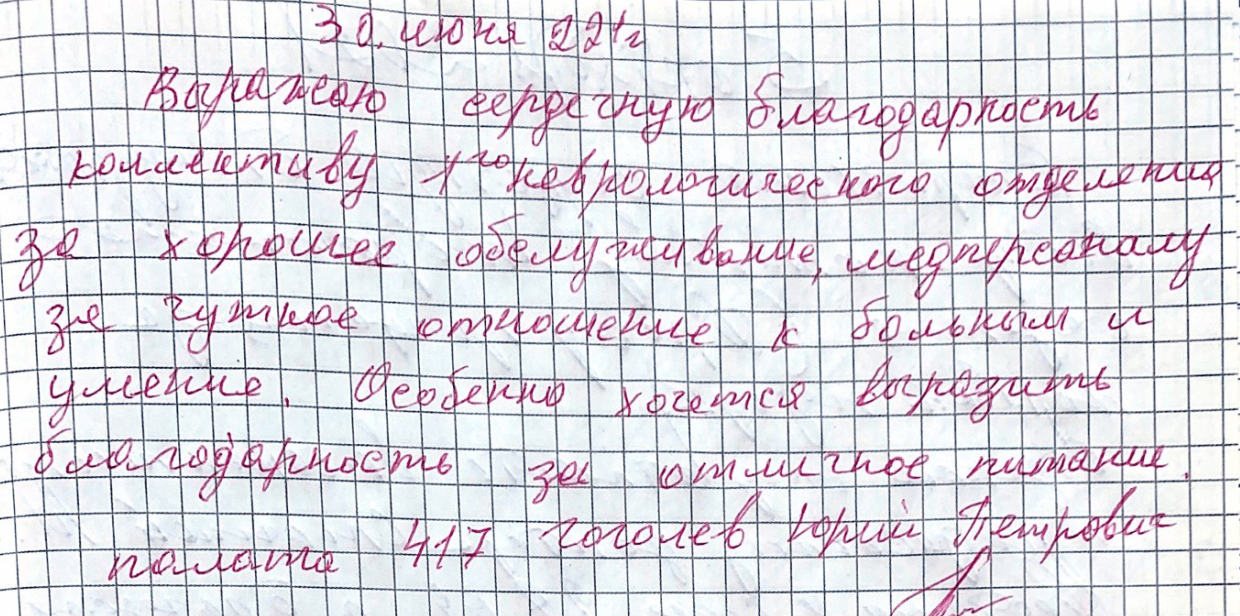 30. июня 221г
Выражаю сердечную благодарность
коллективу 1го неврологического отделения
за хорошее обслуживание, медперсоналу
за чуткое отношение к больным и
умение. Особенно хочется выразить
благодарность за отличное питание.
палата 417 Гоголев Юрий Петрович